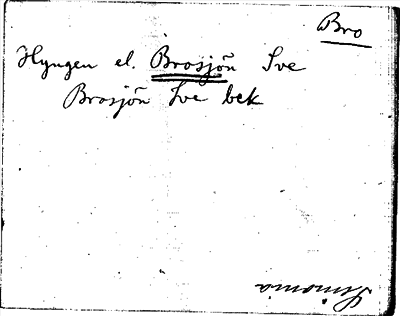 Bro
Hyngen el. Brosjön Sve
Brosjön Sve bek